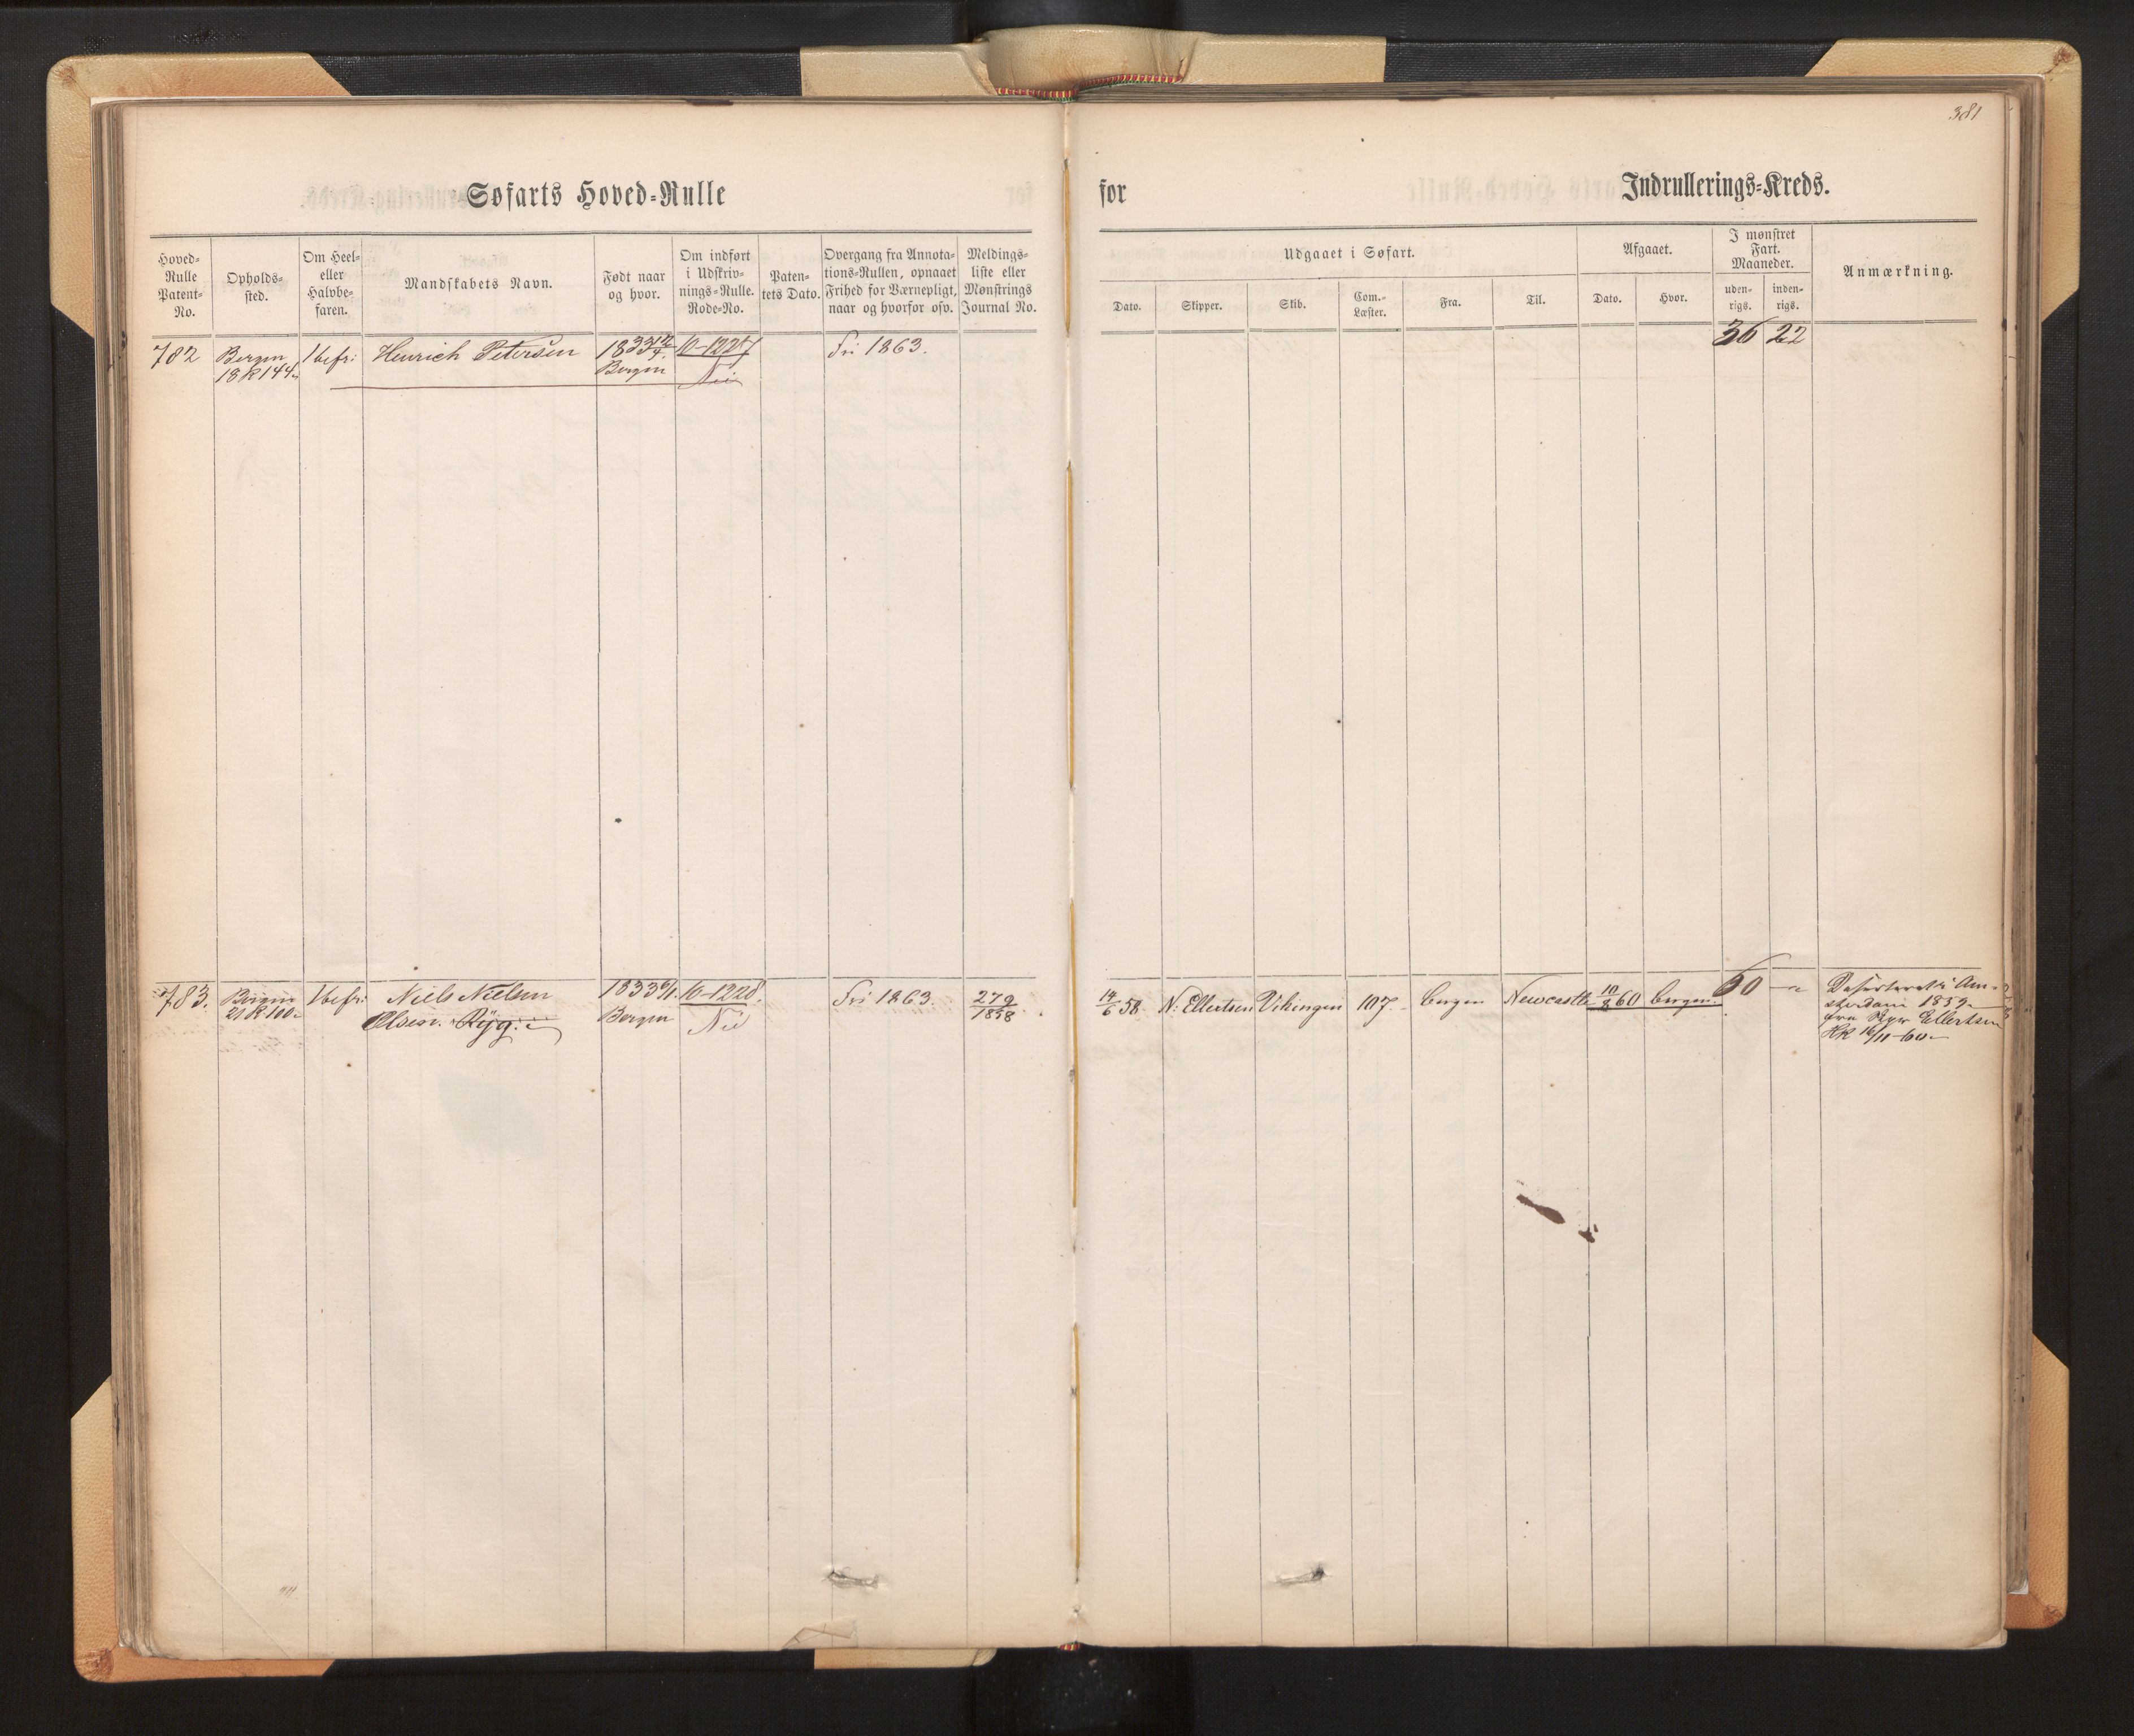 381
Søfarts Hoved=Rulle
for
Indrullerings=Kreds.
Hoved=
Rulle
Patent=
No.
Opholds=
sted.
Om Heel=
eller
Halvbe=
faren.
Mandskabets Navn.
Født naar
og hvor.
Om indført
i Udskriv=
nings=Rulle.
Rode=No.
Paten=
tets Dato.
Overgang fra Annota=
tions=Rullen, opnaaet
Frihed for Værnepligt,
naar og hvorfor osv.
Meldings=
liste eller
Mønstrings
Journal No.
Udgaaet i Søfart.
Dato.
Skipper.
Skib.
Com.=
Læster.
Fra.
Til.
Afgaaet.
Dato.
Hvor.
I mønstret
Fart.
Maaneder.
uden=
rigs.
inden=
rigs.
Anmærkning.
782 Bergen 1befr: Henrich Petersen 1833 10-1227 Fri 1863. 36 22
18 R 144 Bergen
783. Bergen 1befr: Niels Nielsen 1833 6/1. 10-1228. Fri 1863. 279/1858 14/6 58. N: Ellertsen Vikingen 107. Bergen Newcastle 10/8 60 Bergen 60 Deserteret i Am=
Olsen. Ryg. Bergen sterdam 1859
fra Skpr Ellertsen
16/11-60